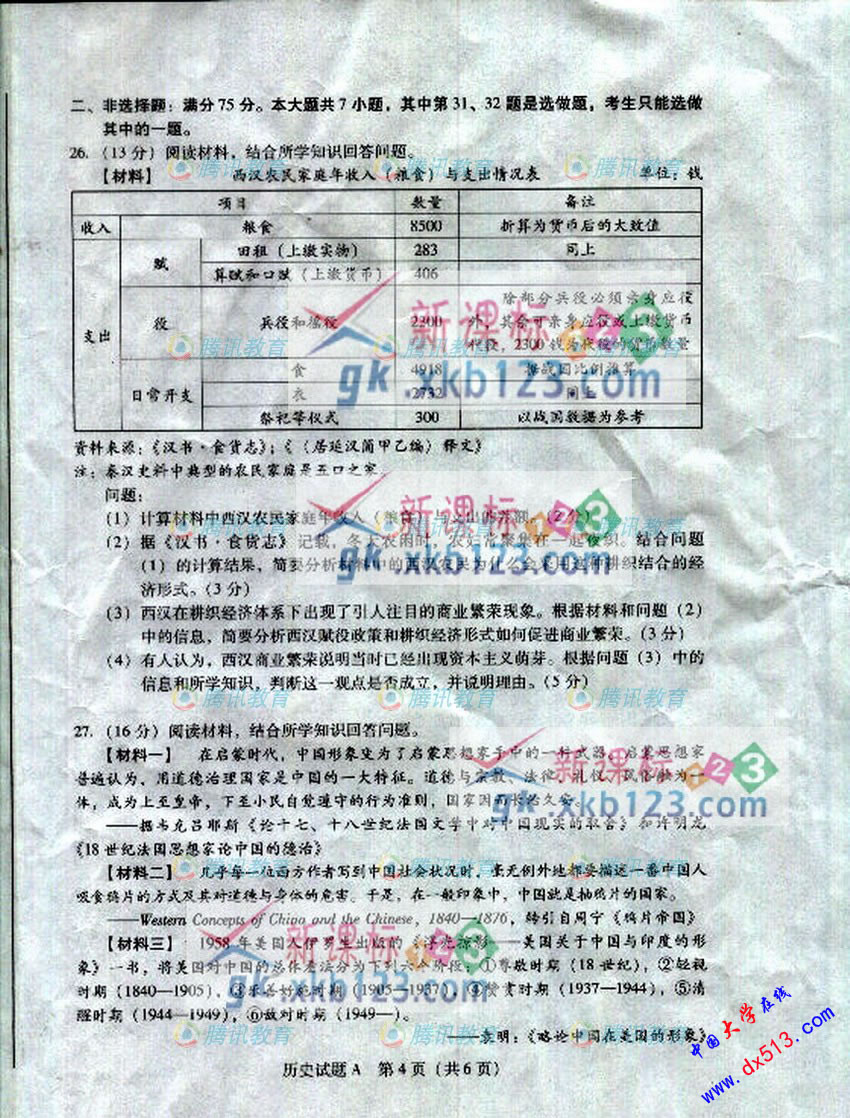 二、非选择题：满分75分。本大题共7小题，其中第31、32题是选做题，考生只能选做
其中的一题。
26.（13分）阅读材料，结合所学知识回答问题。
【材料】 西汉农民家庭年收入（粮食）与支出情况表 单位：钱
项目 数量 备注
收入 粮食 8500 折算为货币后的大致值
支出 赋 田租（上缴实物） 283 同上
算赋和口赋（上缴货币） 406
役 兵役和徭役 2300 除部分兵役必须亲身应役
外，其余可亲身应役或上缴货币
代役，2300钱为代役的货币数量
日常开支 食 4918 据战国比例推算
衣 2732 同上
祭祀等仪式 300 以战国数据为参考
资料来源：《汉书·食货志》；《〈居延汉简甲乙编〉释文》
注：秦汉史料中典型的农民家庭是五口之家。
问题：
（1）计算材料中西汉农民家庭年收入（粮食）与支出的差额。（2分）
（2）据《汉书·食货志》记载，冬天农闲时，农妇常聚集在一起夜织。结合问题
（1）的计算结果，简要分析材料中的西汉农民为什么会采用这种耕织结合的经
济形式。（3分）
（3）西汉在耕织经济体系下出现了引人注目的商业繁荣现象。根据材料和问题（2）
中的信息，简要分析西汉赋役政策和耕织经济形式如何促进商业繁荣。（3分）
（4）有人认为，西汉商业繁荣说明当时已经出现资本主义萌芽。根据问题（3）中的
信息和所学知识，判断这一观点是否成立，并说明理由。（5分）
27.（16分）阅读材料，结合所学知识回答问题。
【材料一】 在启蒙时代，中国形象变为了启蒙思想家手中的一种武器。启蒙思想家
普遍认为，用道德治理国家是中国的一大特征。道德与宗教、法律、礼仪、风俗融为一
体，成为上至皇帝，下至小民自觉遵守的行为准则，国家因而长治久安。
——据韦克吕耶斯《论十七、十八世纪法国文学中对中国现实的取舍》和许明龙
《18世纪法国思想家论中国的德治》
【材料二】 几乎每一位西方作者写到中国社会状况时，毫无例外地都要描述一番中国人
吸食鸦片的方式及其对道德与身体的危害。于是，在一般印象中，中国就是抽鸦片的国家。
——Western Concepts of China and the Chinese, 1840—1876，转引自周宁《鸦片帝国》
【材料三】 1958年美国人伊罗生出版的《浮光掠影——美国关于中国与印度的形
象》一书，将美国对中国的总体看法分为下列六个阶段：①尊敬时期（18世纪），②轻视
时期（1840—1905），③乐善好施时期（1905—1937），④赞赏时期（1937—1944），⑤清
醒时期（1944—1949），⑥敌对时期（1949—）。
——袁明：《略论中国在美国的形象》
历史试题A 第4页（共6页）
腾讯教育
新课标 123
gk.xkb123.com
中国大学在线
www.dx513.com